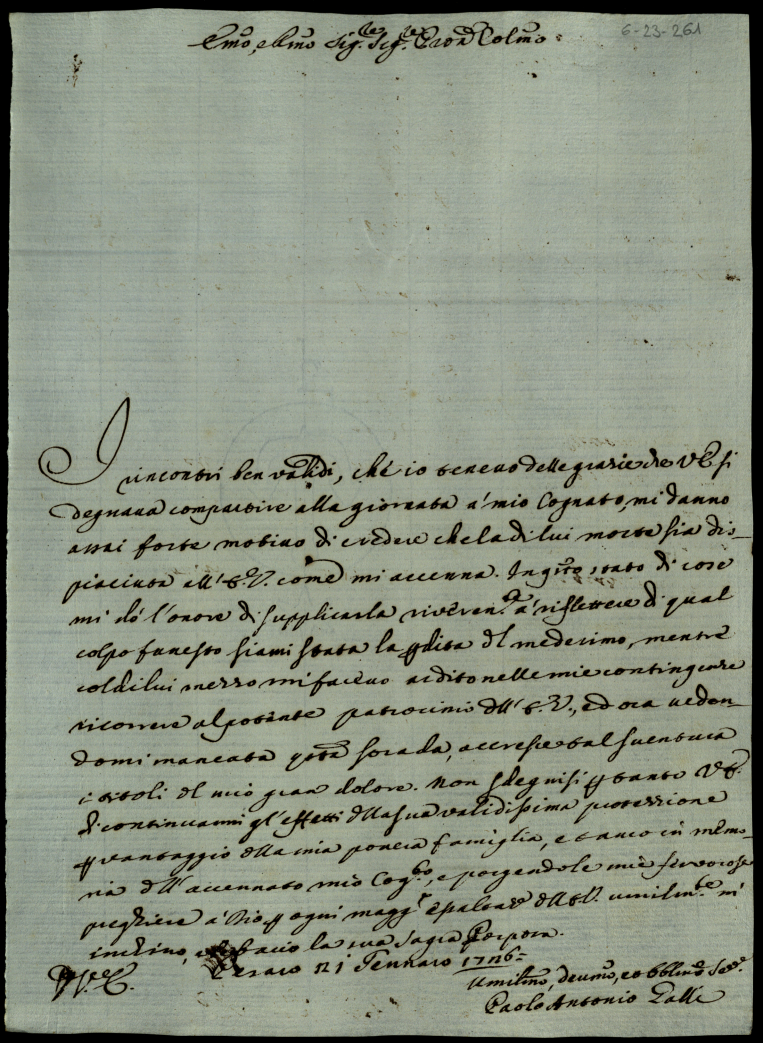 6-23-261
Emo, e Rmo Sig.re Sig.re Pron Colmo
Incontri ben validi, che io tenevo delle grazie che VE si
degnava compartire alla giornata a' mio Cognato, mi danno
assai forte motivo di credere che la di lui morte sia dis-
piaciuta all'E.V. come mi accenna. In qsto stato di cose
mi dò l'onore di supplicarla riveren.te a' riflettere di qual
colpo funesto siami stata la pdita del medesimo, mentre
col di lui mezzo mi facevo ardito nelle mie contingenze
ricorrere al potente patrocinio dell'E.V., ed ora veden-
domi mancata qsta strada, accresce tal sventura
i titoli del mio gran dolore. Non sdegnisi p tanto VE.
di continuarmi gl'effetti della sua validissima protezzione
p vantaggio della mia povera famiglia, e tanto in memo-
ria dell'accennato mio Cog.to, e porgendole mie fervorose
preghiere a' Dio p ogni magg.r esaltaz.e dell'E.V. umilm.te m'
inchino, e bacio la sua Sagra Porpora.
Pesaro 21 Gennaro 1726=
Umilmo, devmo, et obblimo Ser.e
Paolo Antonio Galli